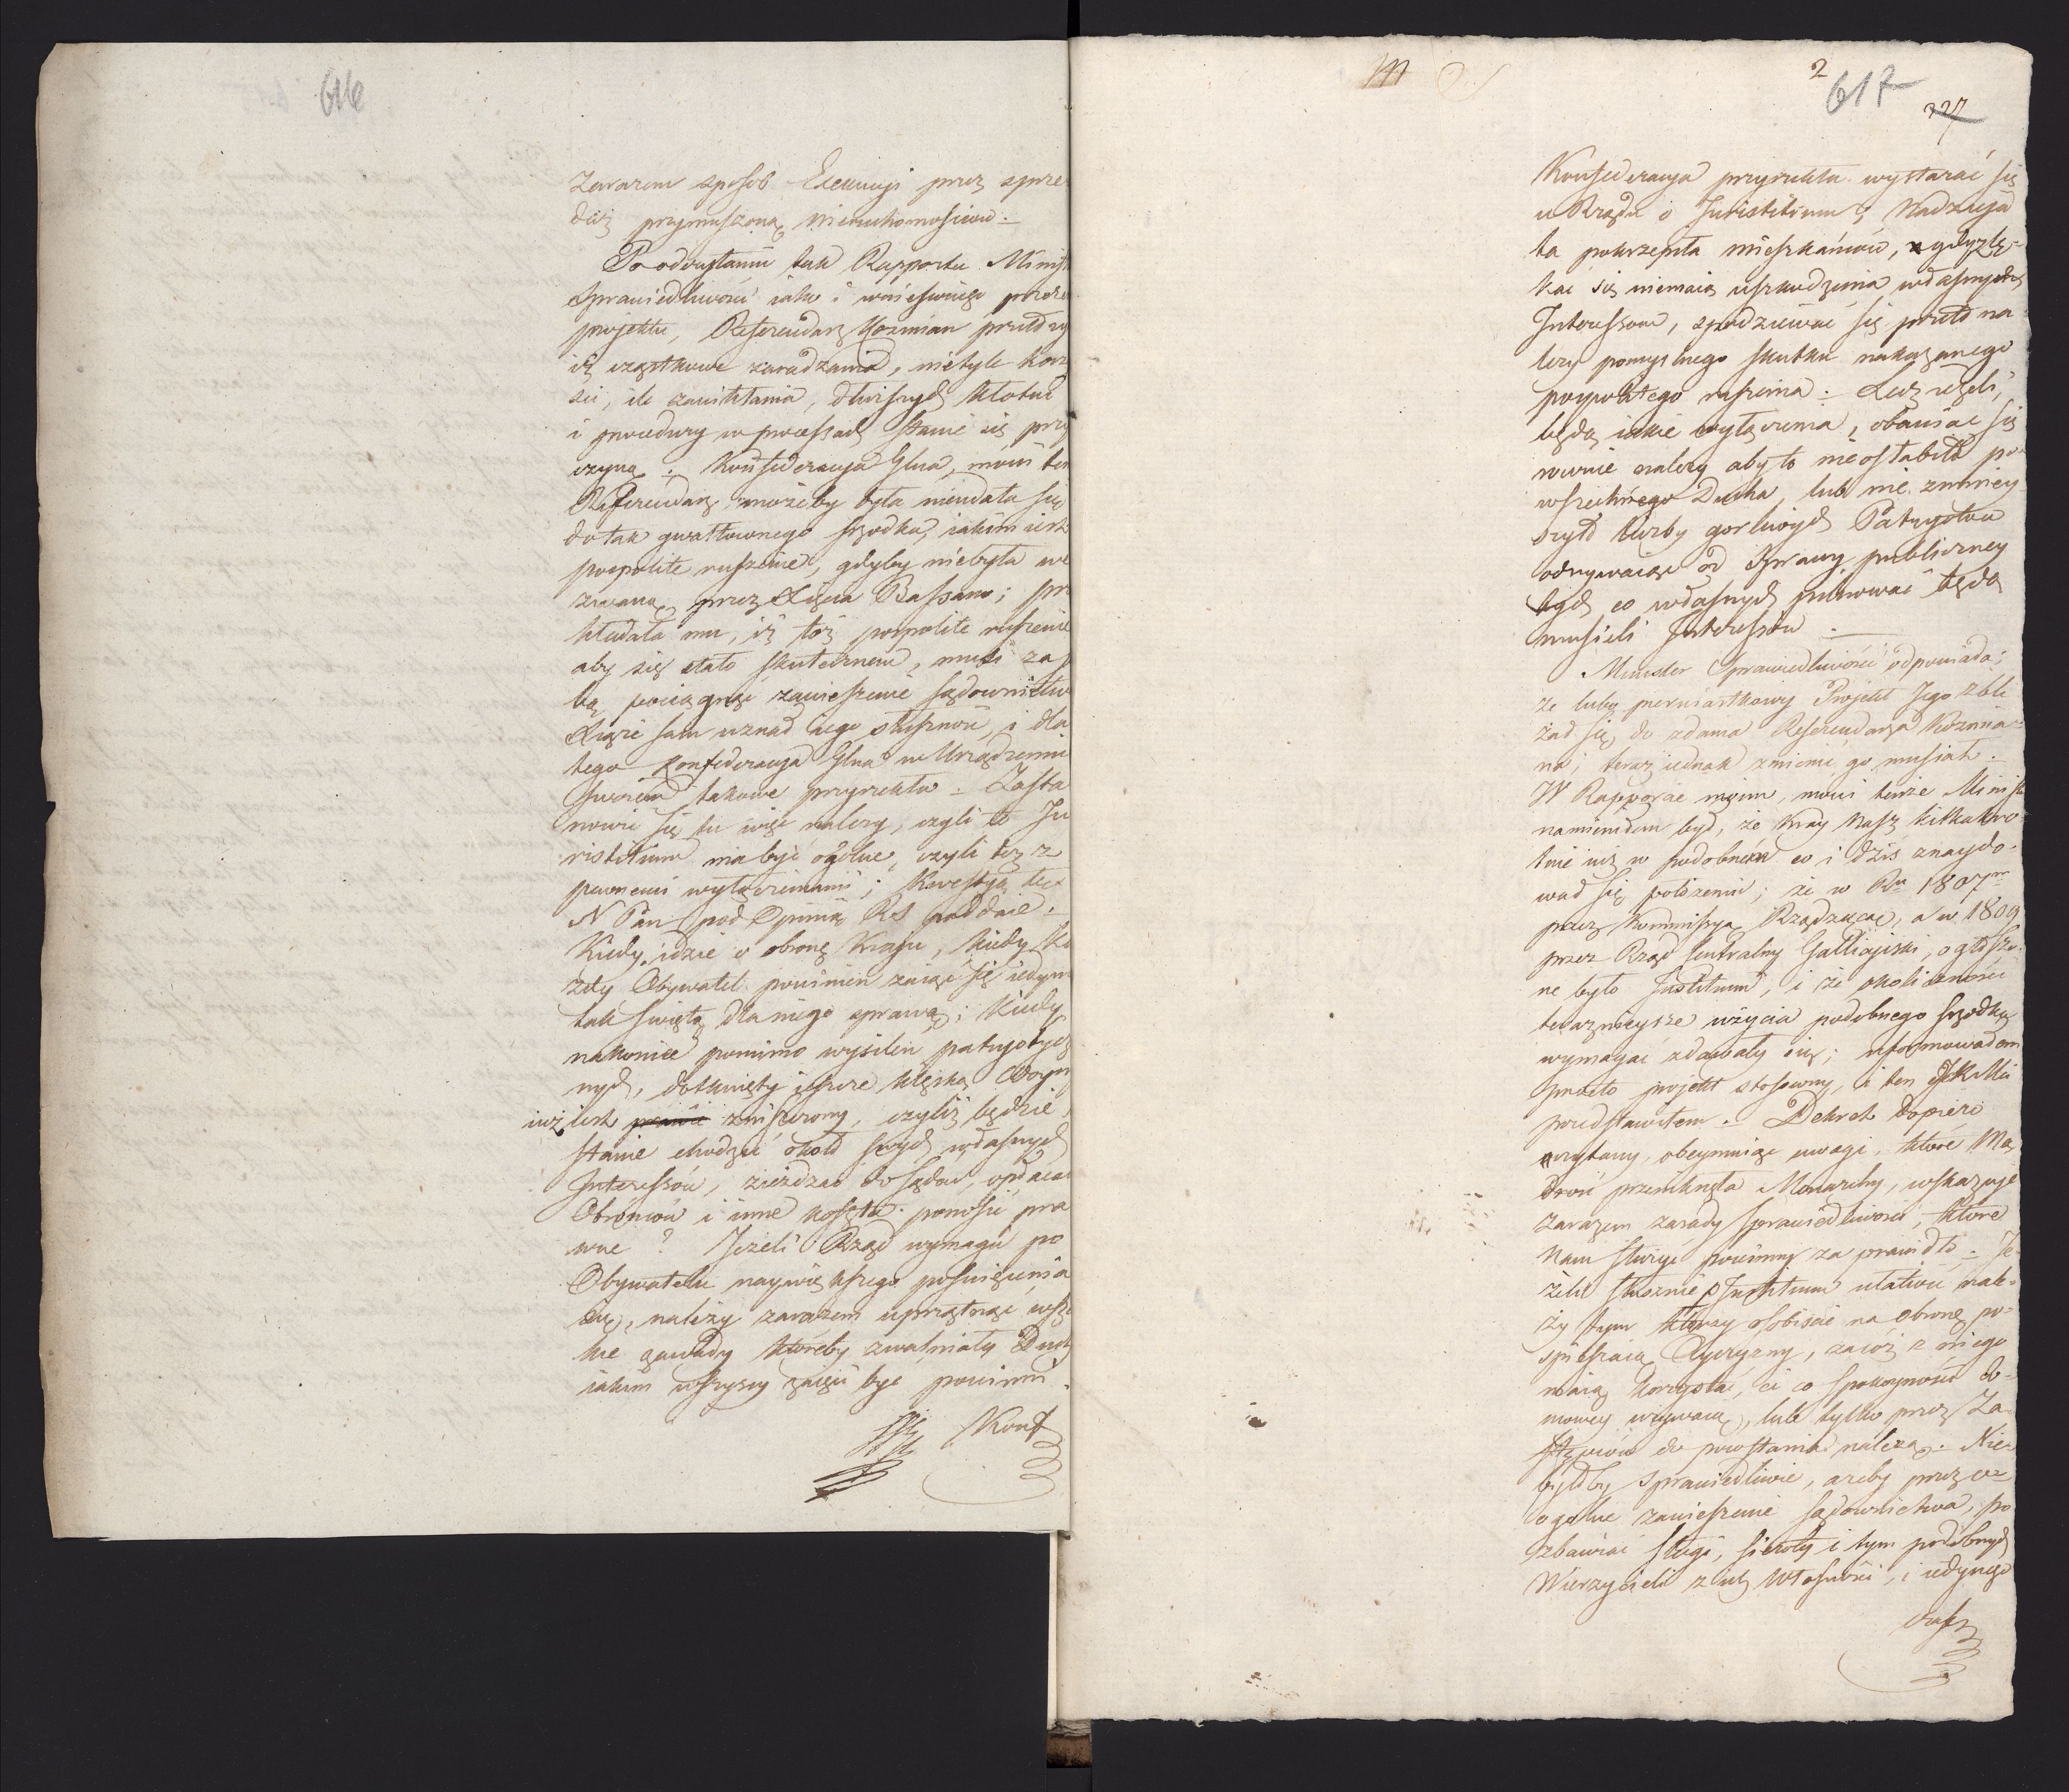 616
zarazem sposob Exekucyi przez sprze
daż przymuszoną nieruchomościów.
Po odczytaniu tak Rapportu Minist
Sprawiedliwości iako i wniesionego przezeń
projektu, Referendarz Kozmian przełoży
iż cząstkowe zaradzenia, nietyle korz
ści, ile zawikłania, dłuższych kłotni
i procedury w processach stanie się przy
czyną. Konfederacya Glna, mówi ten
Referendarz możeby była nieudała się
do tak gwałtownego srzodka, iakim iest
pospolite ruszenie, gdyby niebyła we
zwaną przez Xięcia Bassano; prze
kładała mu, iż toż pospolite ruszenie
aby się stało skutecznem, musi za so
bą pociągnąć zawieszenie sądownictw
Xiąże sam uznał iego słuszność, i dla
tego Konfederacya Glna w Urządzeniu
swoiem takowe przyrzekła. Zasta
nowić się tu więc należy, czyli to Ju
ristitium ma być ogolne, czyli też z
pewnemi wyłączeniami; Kwestyą tę
N Pan pod Opinią RS poddaie.
Kiedy idzie o obronę Kraju, kiedy Ka
żdy Obywatel powinien zaiąć się iedyni
tak świętą dla niego sprawą; kiedy
nakoniec pomimo wysileń patryotycz
nych, dotknięty ieszcze klęską Woyny
iuż iest prawie zniszczony, czyliż będzie w
stanie chodzić około swych własnych
Interessów, zieżdzać do Sądów, opłacać
Obrońców i inne koszta ponosić pra
wne? Jeżeli Rząd wymaga po
Obywatelu naywiększego poświęcenia
się, należy zarazem uprzątnąć wsze
kie zawady któreby zwalniały Duch
iakim wszyscy zaięci być powinni.
Konf
2
617
227
Konfederacya przyrzekła wystarać się
u Rządu o Juristitium; Nadzieja
ta pokrzepiła mieszkańców, gdyż lę-
kać się niemaią uszkodzenia własnych
Interessow, spodziewać się przeto na
leży pomyslnego skutku nakazanego
pospolitego ruszenia. Lecz ieżeli,
będą iakie wyłączenia, obawiać się
rownie należy aby to nie osłabiło po-
wszechnego Ducha, lub nie zmniey
szyło liczby gorliwych Patryotow
odrywaiąc od Sprawy publiczney
tych co własnych pilnować będą
musieli Interessow.
Minister Sprawiedliwości odpowiada;
że lubo pierwiastkowy Projekt Jego zbli
żał się do zdania Referendarza Kozmia-
na; teraz iednak zmienić go musiał.
W Rapporcie moim, mówi tenże Ministr
namienidem był, że Kray Nasz kilkakro
tnie iuż w podobném co i dziś znaydo-
wał się położeniu; że w Ru 1807m
przez Kommissyą Rządzącą, a w 1809
przez Rząd Centralny Galliciyski, ogłoszo-
ne było Justitium, i że okoliczności
teraznieysze użycia podobnego srzodka
wymagać zdawały się; uformowałem
przeto projekt stosowny, i ten JKMci
przedstawiłem. Dekret dopiero
czytany, obeymuiąc uwagi, które Mą
drość przeniknęła Monarchy, wskazuje
zarazem zasady Sprawiedliwości, które
Nam służyć powinny za prawidło. Je-
żeli słusznie Justitium ułatwić nale-
ży tym którzy osobiście na obronę po-
spieszaią Oyczyzny, zacóż z niego
maią korzystać, ci co spokoyności do-
mowey używaią, lub tylko przez Za-
stępców do powstania należą. Nie-
byłoby sprawiedliwie, ażeby przez
ogolne zawieszenie sądownictwa, po
zbawiać sługi, sieroty i tym podobnych
Wierzycieli z ich Własności, i iedynego